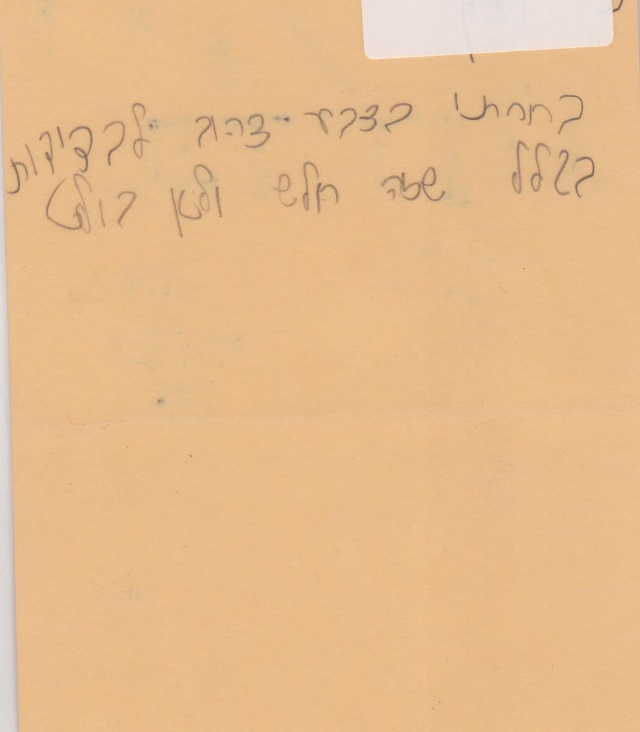 בחרתי בצבע צהוב לבדידות
בגלל שזה חלש ולא בולט